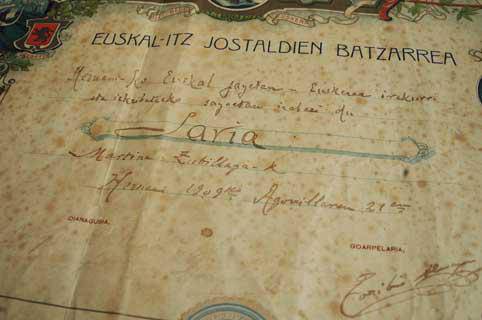 EUSKAL-ITZ JOSTALDIEN BATZARREA
Hernani-ko Euskal jayetan - Euskeraz irakurri
eta izketatzeko sayoetan irabazi du
Saria
Martina Zubillaga-k
Hernani 1909ko Agorrillaren 21ean
DIARAGUSIA,
GOARPELARIA,